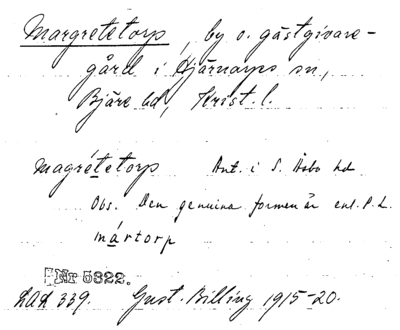 Margretetorp, by o. gästgivare-
gård i Hjärnarps sn,
Bjäre hd, Krist. l.
magrétetorp Ant. i S. Åsbo hd
Obs. Den genuina formen är enl. P. L.
mártorp
Nr 5322.
LAL 339. Gust. Billing 1915-20.